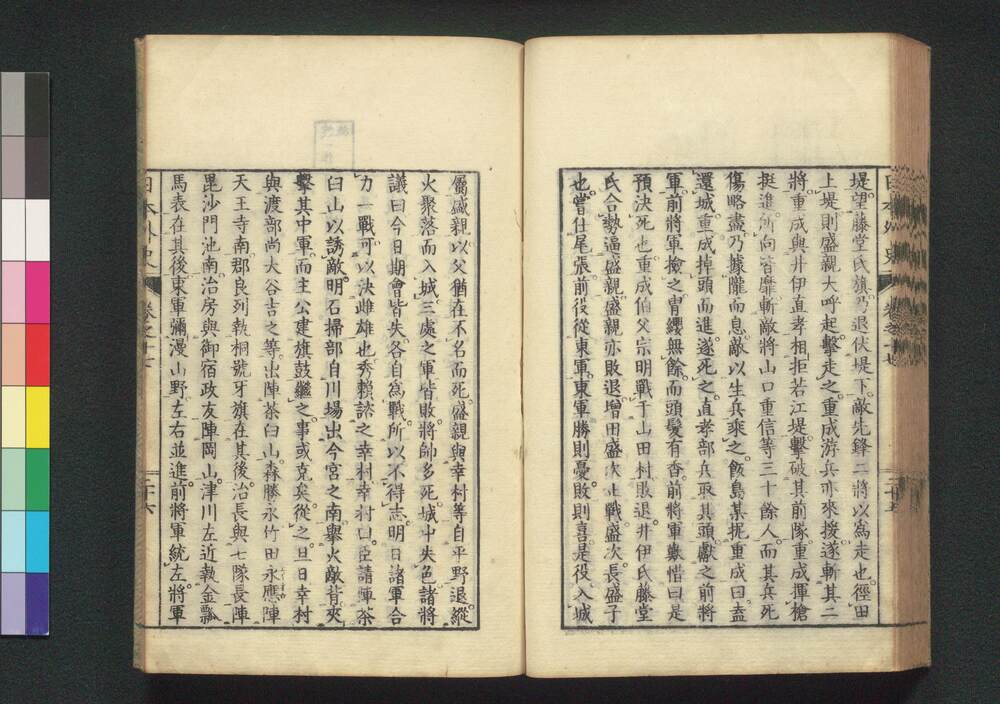 堤望藤堂氏旗乃退伏堤下敵先鋒二將以爲走也徑田
上堤則盛親大呼起擊走之重成游兵亦來援遂斬其二
將重成與井伊直孝相拒若江堤擊破其前隊重成揮槍
挺進所向皆靡斬敵將山口重信等三十餘人而其兵死
傷略盡乃據隴而息敵以生兵乘之飯島某扼重成曰盍
還城重成掉頭而進遂死之直孝部兵取其頭獻之前將
軍前將軍撿之冑纓無餘而頭髮有香前將軍歎惜曰是
預決死也重成伯父宗明戰于山田村敗退井伊氏藤堂
氏合勢逼盛親盛親亦敗退增田盛次止戰盛次長盛子
也嘗仕尾張前役從東軍東軍勝則憂敗則喜是役入城
日本外史 卷之十七 二十五
屬盛親以父猶在不名而死盛親與幸村等自平野退縱
火聚落而入城三處之軍皆敗將帥多死城中失色諸將
議曰今日期會皆失各自爲戰所以不得志明日諸軍合
力一戰可以決雌雄也秀賴諾之幸村幸村曰臣請陣茶
臼山以誘敵明石掃部自川場出今宮之南舉火敵背夾
擊其中軍而主公建旗鼓繼之事或克矣從之旦日幸村
與渡部尚大谷吉之等出陣茶臼山森勝永竹田永應陣
天王寺南郡良列執桐號牙旗在其後治長與七隊長陣
毘沙門池南治房與御宿政友陣岡山津川左近執金瓢
馬表在其後東軍彌漫山野左右並進前將軍統左將軍
日本外史 卷之十七 二十六